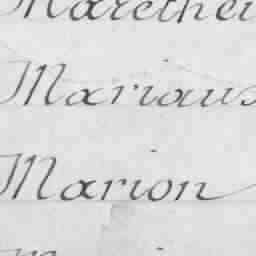 Marethei
Mariaus
Marion